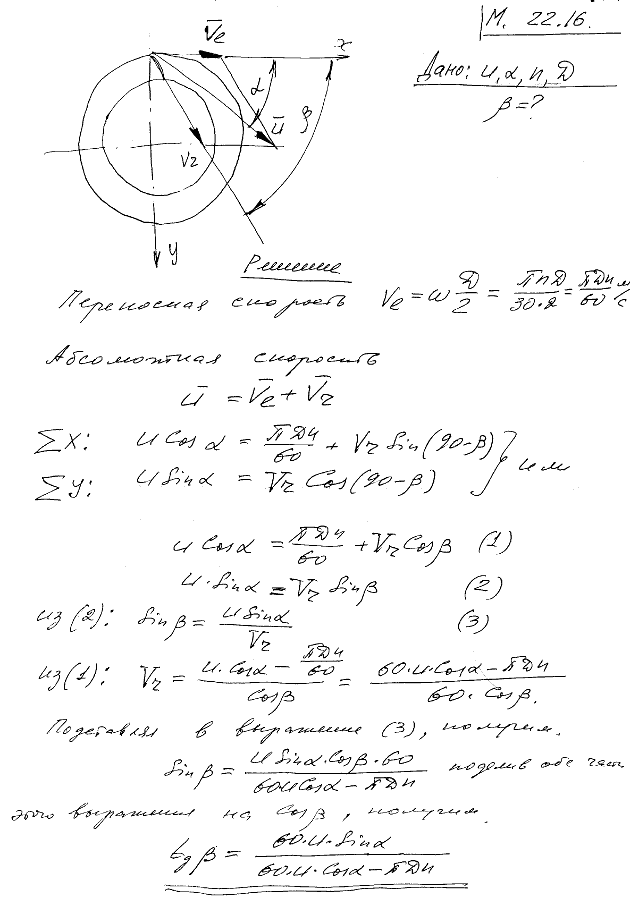 М. 22.16.
V̄e
x
Дано: u, α, n, D
β=?
α
ū
β
Vr
y
Решение
Переносная скорость Ve = ω D/2 = πnD/30·2 = πDn/60 м/с
Абсолютная скорость
ū = V̄e + V̄r
ΣX: u Cos α = πDn/60 + Vr Sin(90-β)
ΣY: u Sin α = Vr Cos(90-β) } или
u Cos α = πDn/60 + Vr Cos β (1)
u·Sin α = Vr Sin β (2)
из (2): Sin β = u Sin α/Vr (3)
из (1): Vr = (u·Cos α - πDn/60)/Cos β = (60·u·Cos α - πDn)/60·Cos β.
Подставляя в выражение (3), получим.
Sin β = u Sin α·Cos β·60/(60u Cos α - πDn) поделив обе част
этого выражения на Cos β, получим.
tg β = 60·u·Sin α/(60·u·Cos α - πDn)